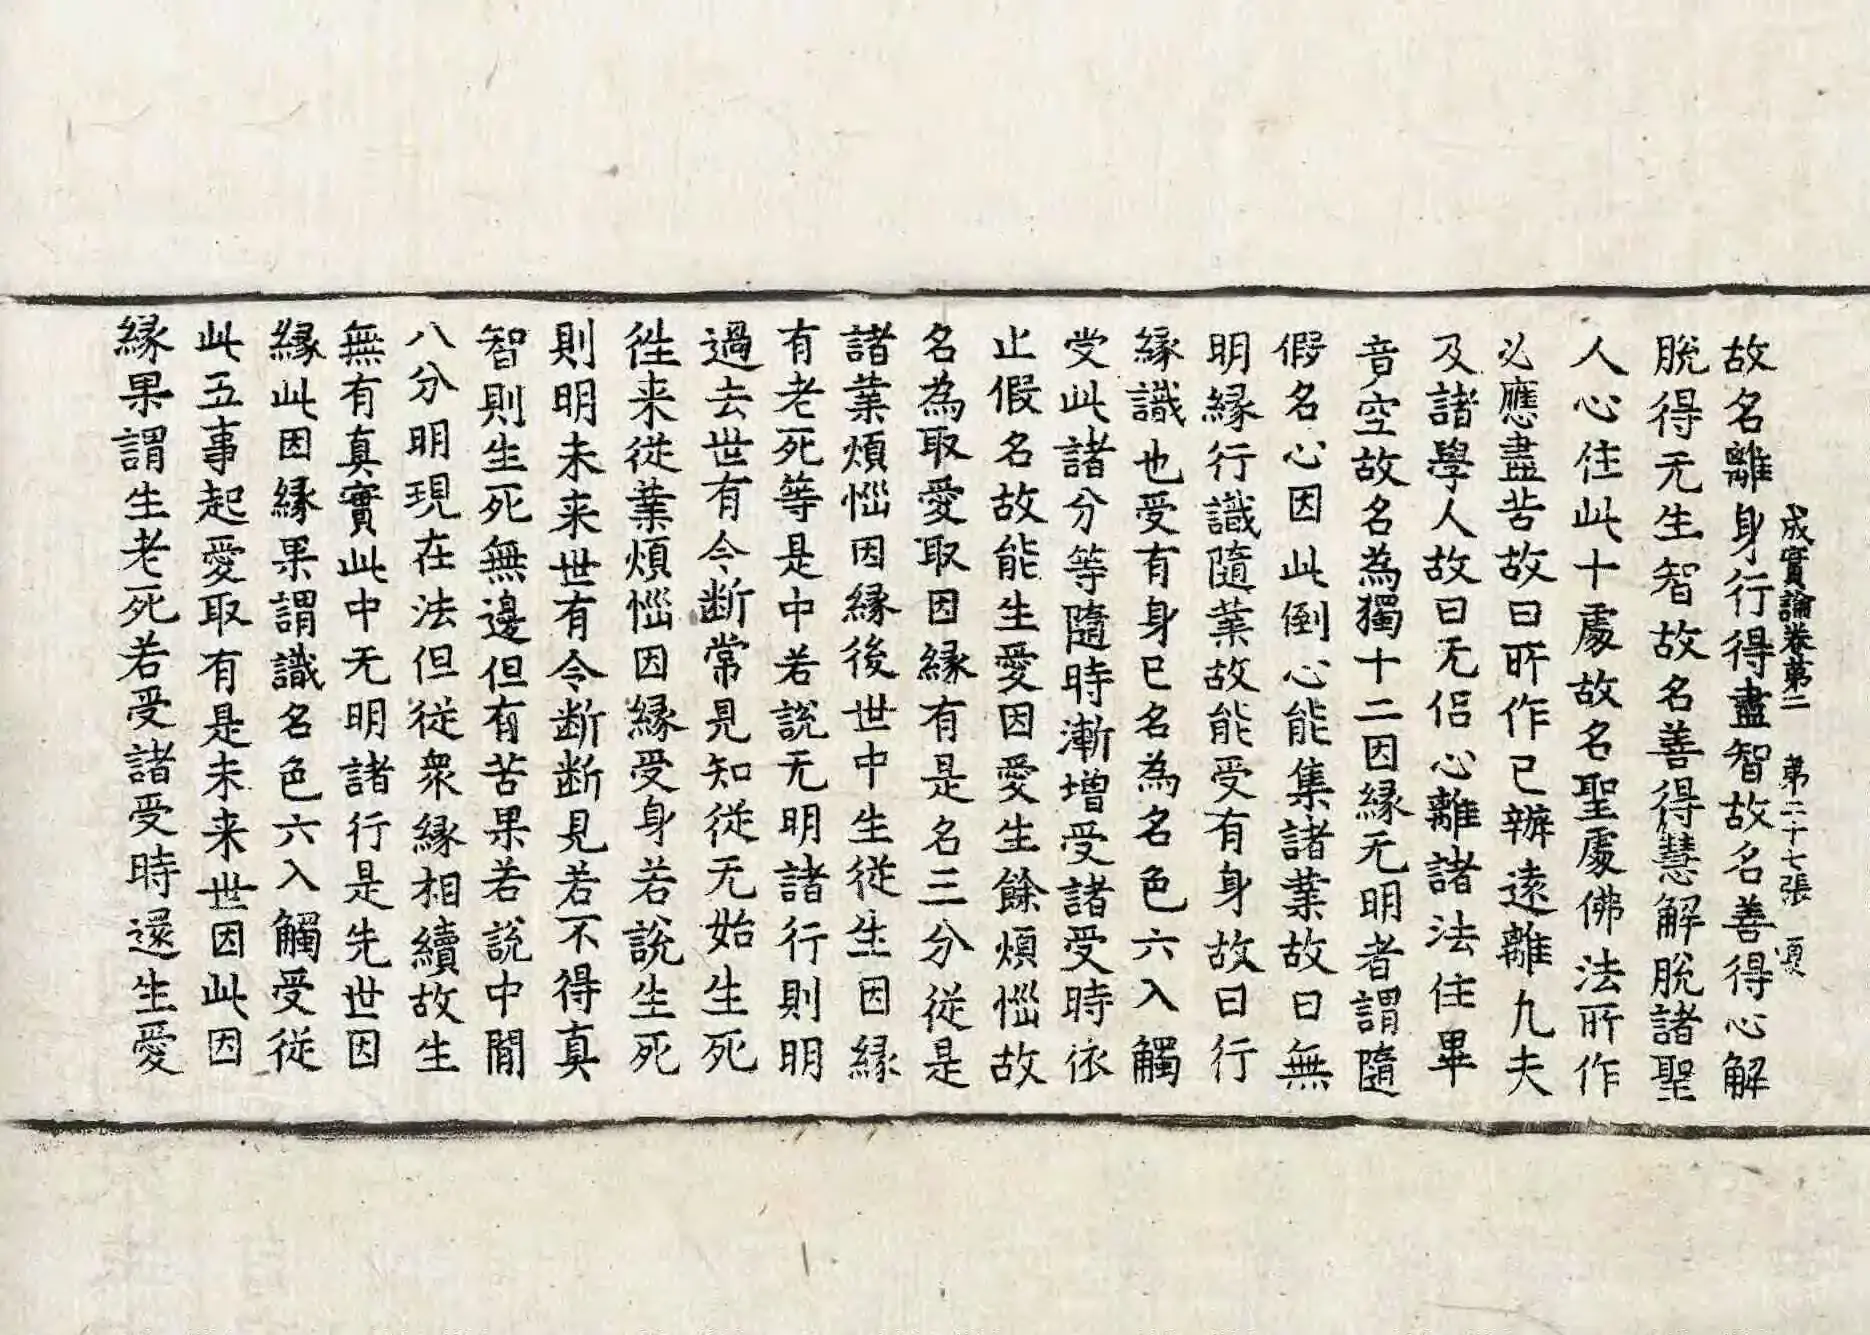 成實論卷第二　第二十七張　頁
故名離身行得盡智故名善得心解
脫得无生智故名善得慧解脫諸聖
人心住此十處故名聖處佛法所作
必應盡苦故曰所作已辦遠離九夫
及諸學人故曰无侣心離諸法住畢
音空故名為獨十二因緣无明者謂隨
假名心因此倒心能集諸業故曰無
明緣行識隨業故能受有身故曰行
緣識也受有身已名為名色六入觸
受此諸分等隨時漸增受諸受時依
止假名故能生愛因愛生餘煩惱故
名為取愛取因緣有是名三分從是
諸業煩惱因緣後世中生從生因緣
有老死等是中若說无明諸行則明
過去世有令断常見知從无始生死
徃来從業煩惱因緣受身若說生死
則明未来世有令断断見若不得真
智則生死無邊但有苦果若說中間
八分明現在法但從衆緣相續故生
無有真實此中无明諸行是先世因
緣此因緣果謂識名色六入觸受從
此五事起愛取有是未来世因此因
緣果謂生老死若受諸受時還生愛